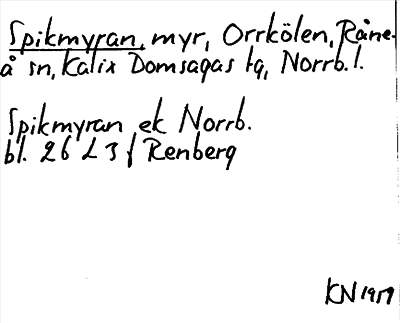 Spikmyran, myr, Orrkölen, Råne-
å sn, Kalix Domsagas tg, Norrb. l.
Spikmyran ek Norrb.
bl. 26 L 3 f Renberg
KN 1959